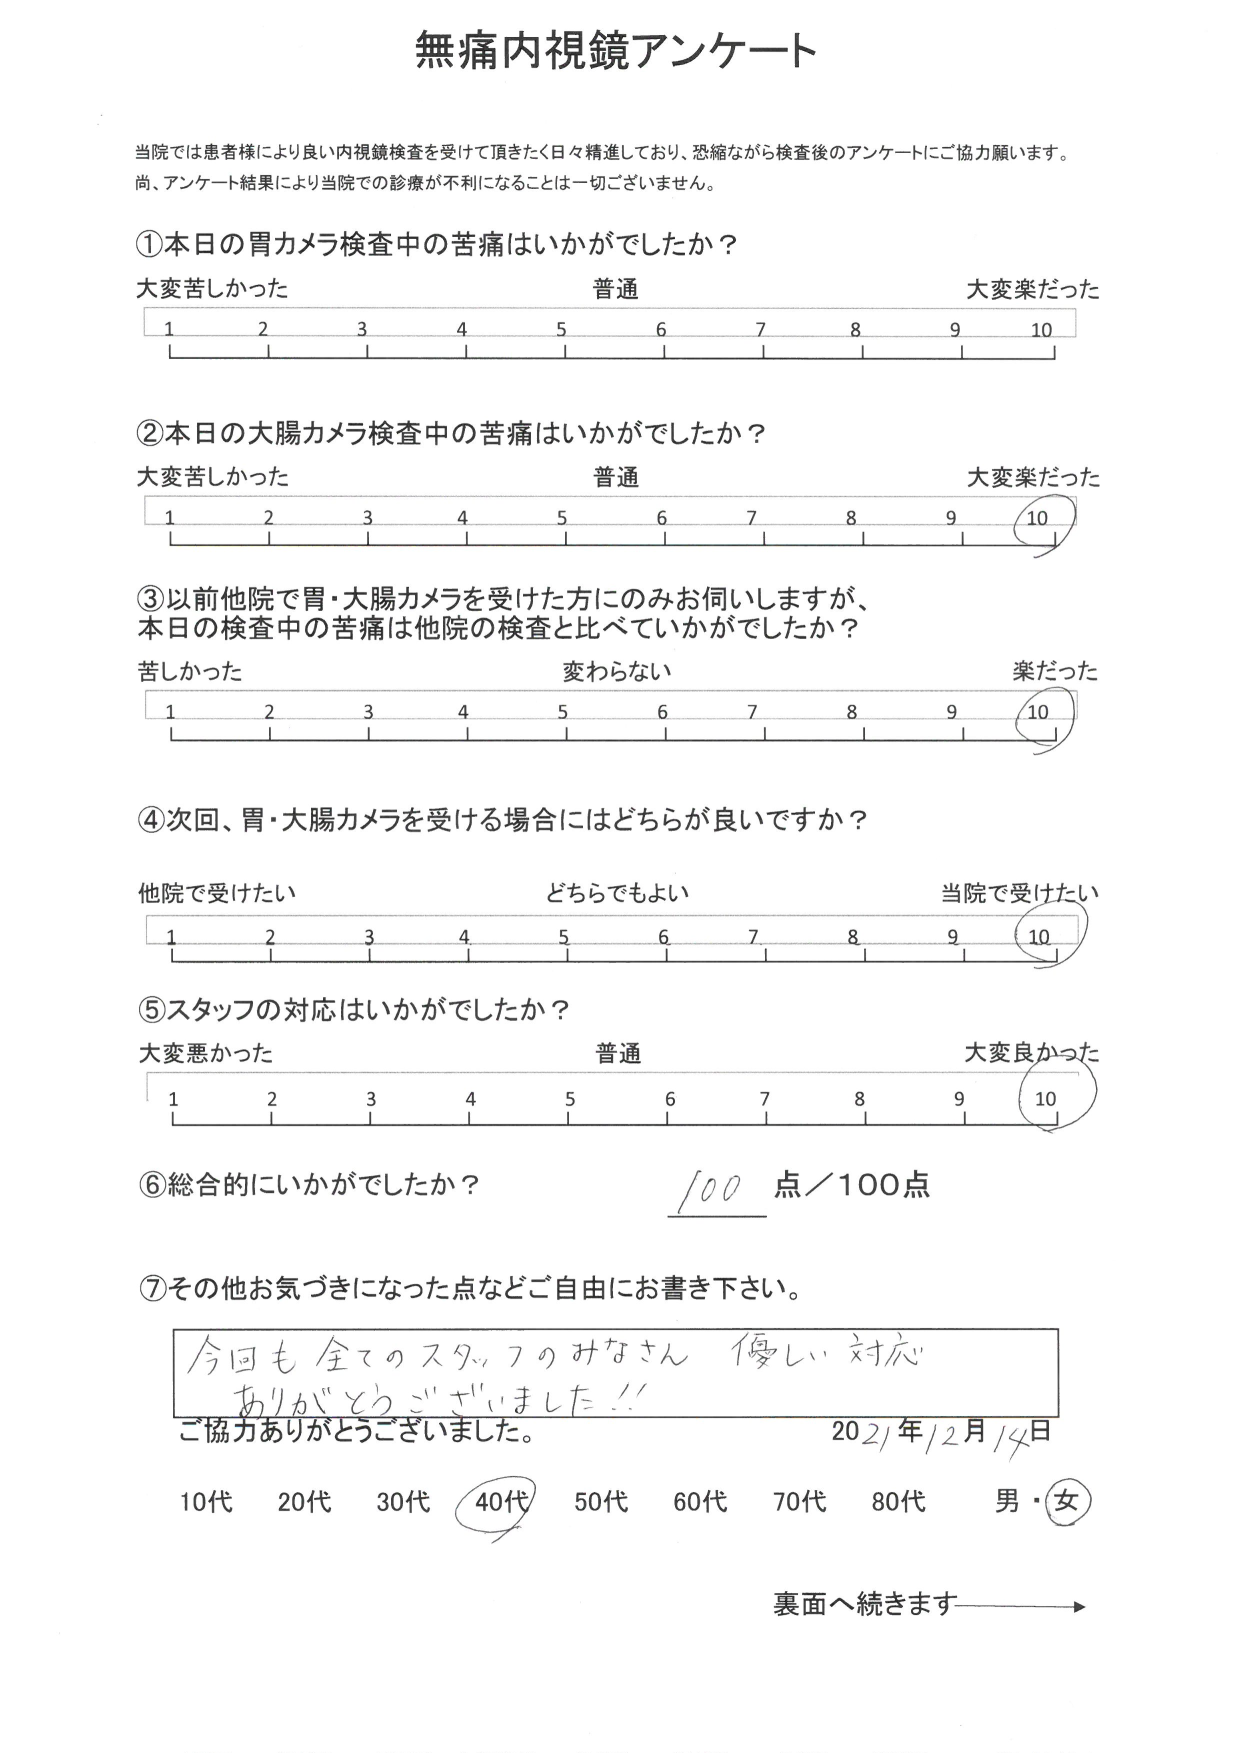 無痛内視鏡アンケート
当院では患者様により良い内視鏡検査を受けて頂きたく日々精進しており、恐縮ながら検査後のアンケートにご協力願います。
尚、アンケート結果により当院での診療が不利になることは一切ございません。
①本日の胃カメラ検査中の苦痛はいかがでしたか？
大変苦しかった 普通 大変楽だった
1 2 3 4 5 6 7 8 9 10
②本日の大腸カメラ検査中の苦痛はいかがでしたか？
大変苦しかった 普通 大変楽だった
1 2 3 4 5 6 7 8 9 10
③以前他院で胃・大腸カメラを受けた方にのみお伺いしますが、
本日の検査中の苦痛は他院の検査と比べていかがでしたか？
苦しかった 変わらない 楽だった
1 2 3 4 5 6 7 8 9 10
④次回、胃・大腸カメラを受ける場合にはどちらが良いですか？
他院で受けたい どちらでもよい 当院で受けたい
1 2 3 4 5 6 7 8 9 10
⑤スタッフの対応はいかがでしたか？
大変悪かった 普通 大変良かった
1 2 3 4 5 6 7 8 9 10
⑥総合的にいかがでしたか？ 100 点／100点
⑦その他お気づきになった点などご自由にお書き下さい。
今回も全てのスタッフのみなさん 優しい対応
ありがとうございました!!
ご協力ありがとうございました。 2021年12月14日
10代 20代 30代 40代 50代 60代 70代 80代 男・女
裏面へ続きます